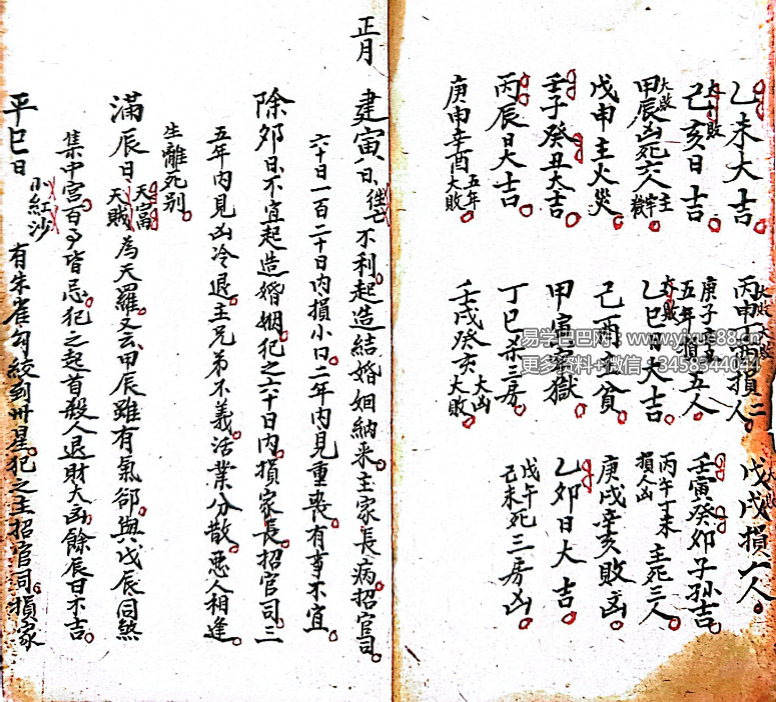 乙未大吉。丙申丁酉損二人。戊戌損六人。
己亥日吉。庚子辛丑五年損五人。壬寅癸卯子孫吉。
大敗甲辰凶死六人。乙巳日大吉。丙午丁未損人凶主死三人。
戊申主火災。己酉主貧。庚戌辛亥敗凶。
壬子癸丑大吉。甲寅牢獄。乙卯日大吉。
丙辰日大吉。丁巳杀三房。戊午己未死三房凶。
庚申辛酉五年大敗。壬戌癸亥大凶大敗。
正月 建寅日往亡不利起造結婚姻納采主家長病招官司。
六十日一百二十日內損小口二年內見重喪有事不宜。
除卯日不宜起造婚姻。犯之六十日內損家長招官司。三
五年內見凶冷退。主兄弟不義活業分散。惡人相逢。
生離死别。
滿辰日天富天賊為天羅。又云甲辰雖有氣郤與戊辰同煞
集中宮百事皆忌。犯之起首殺人退財大凶餘辰日不吉。
平巳日小紅沙有朱雀勾絞到卅星。犯之主招官司。損家
易学巴巴网：www.yixue88.cn
更多资料+微信：3458344044